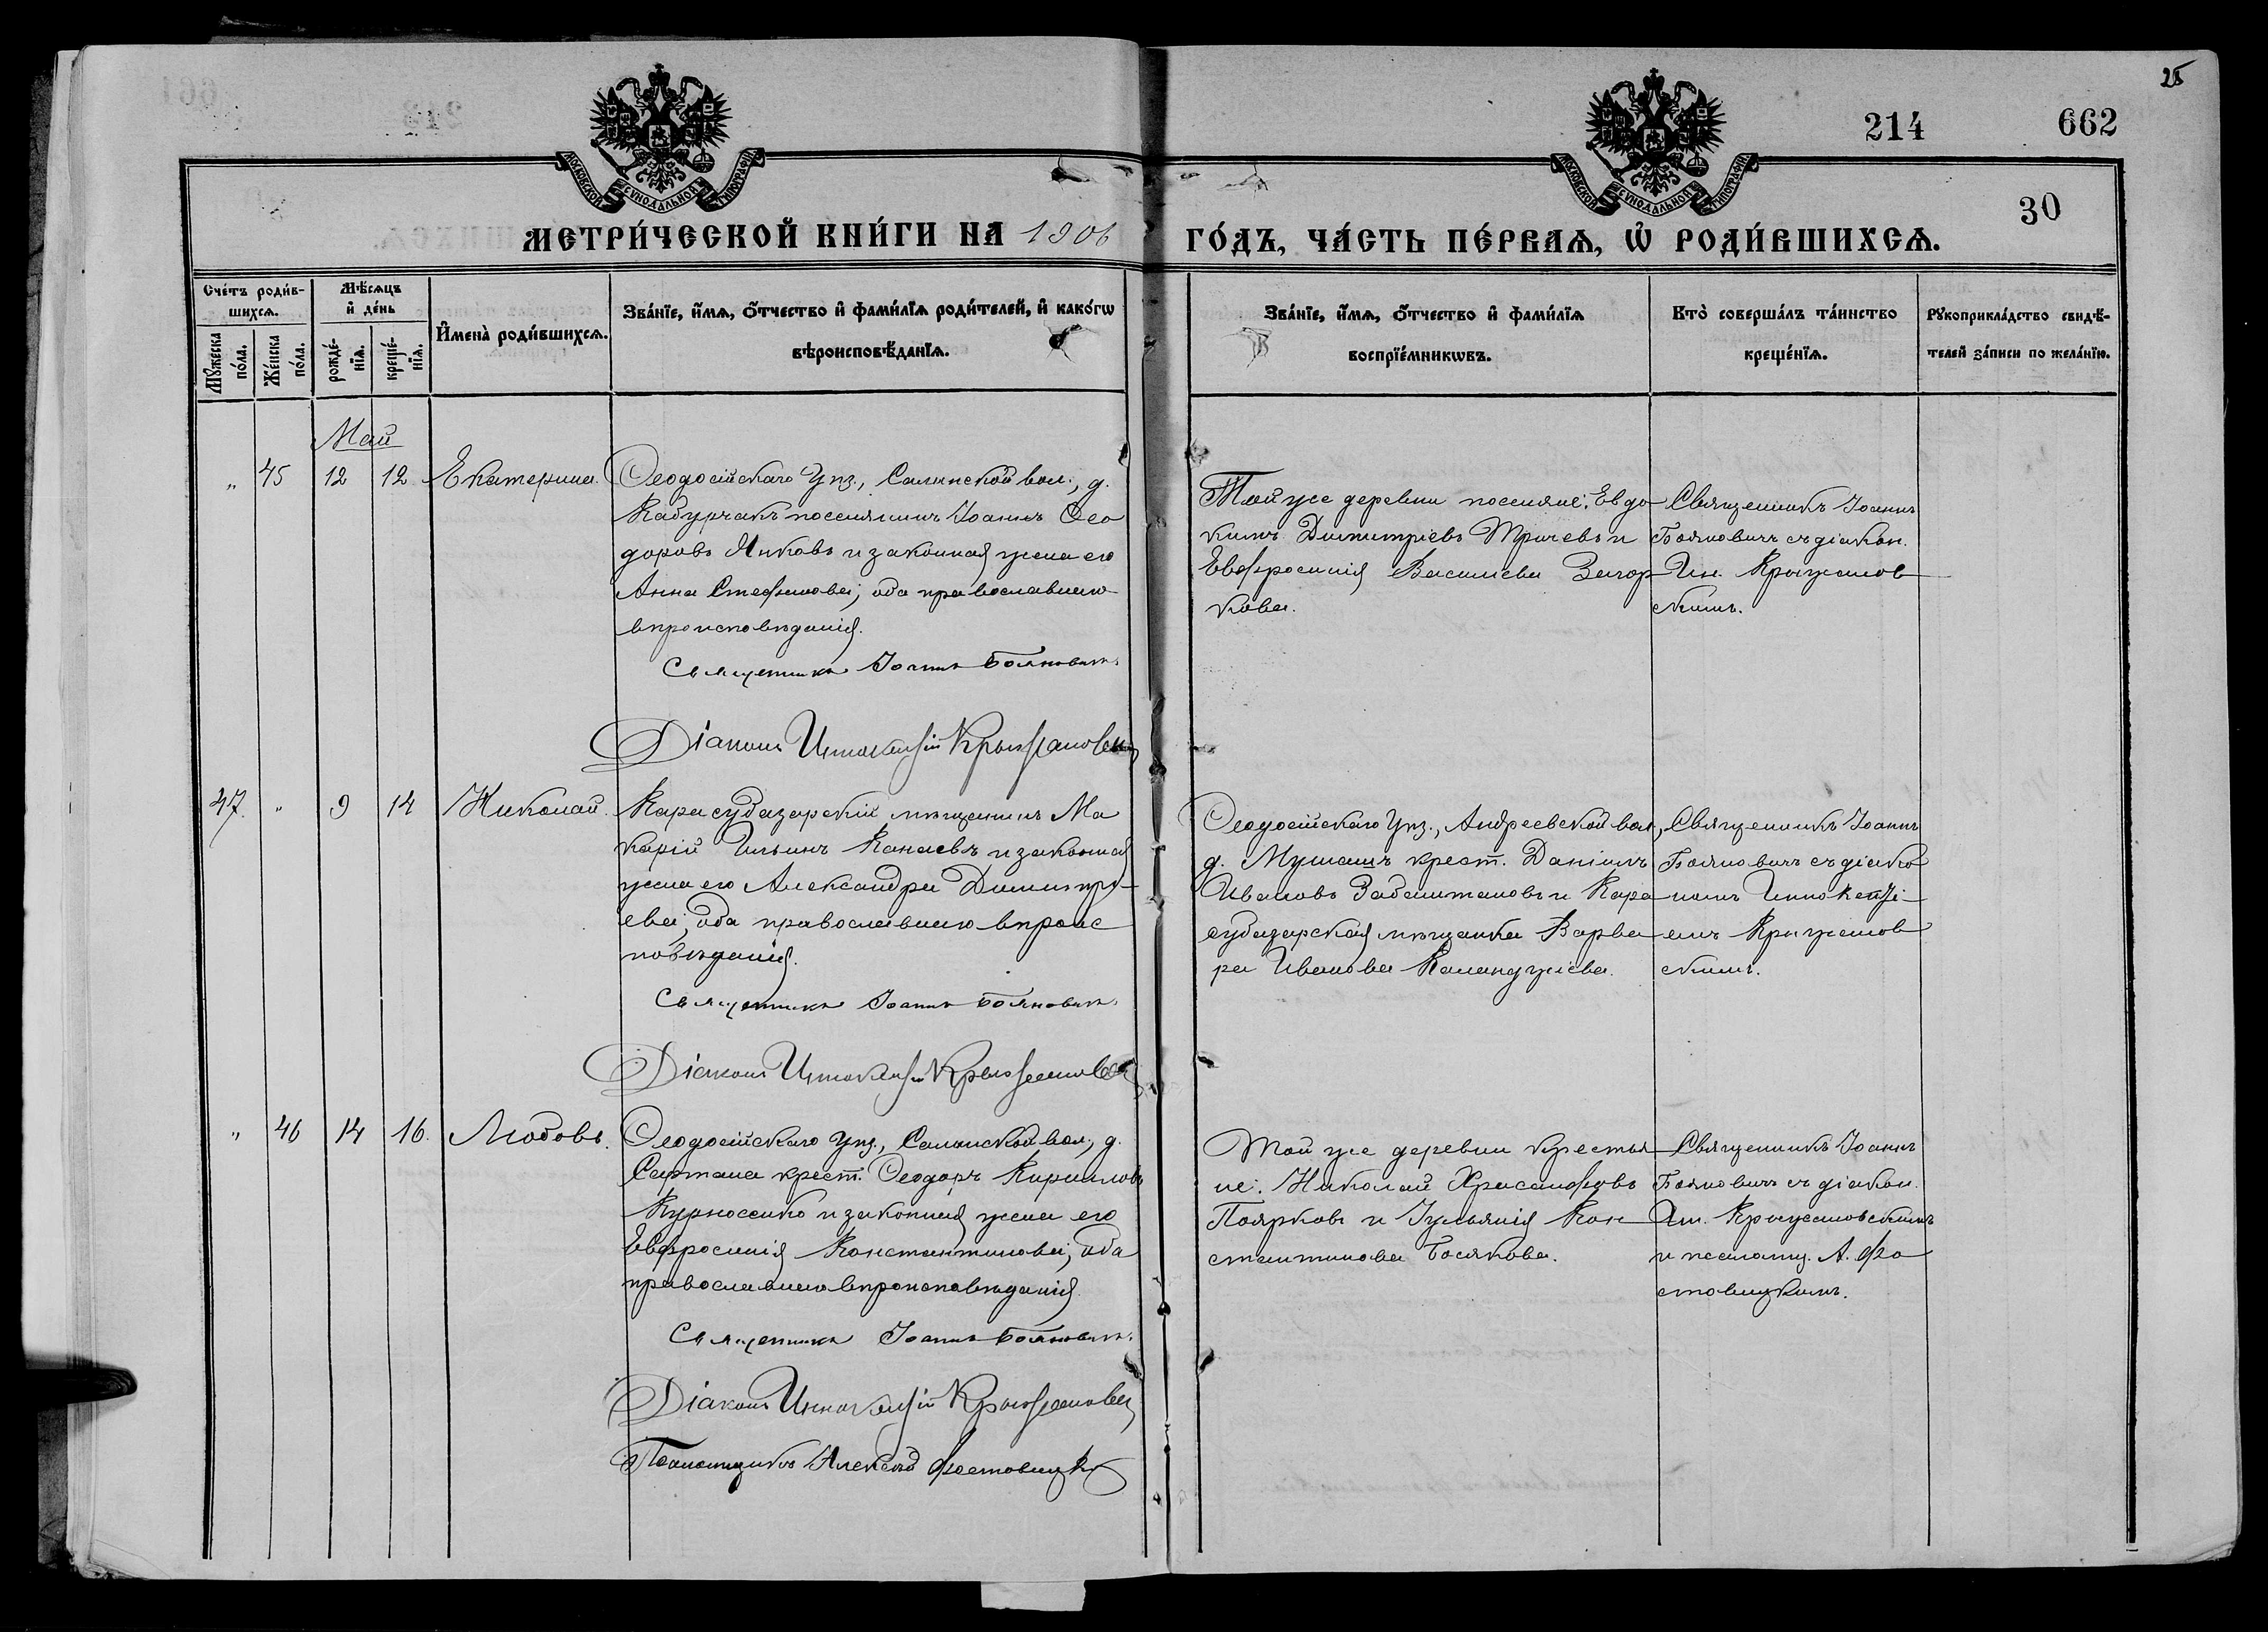 25
214
662
30
МОСКОВСКОЙ СѴНОДАЛЬНОЙ ТИПОГРАФІИ
МОСКОВСКОЙ СѴНОДАЛЬНОЙ ТИПОГРАФІИ
МЕТРИ́ЧЕСКОЙ КНИ́ГИ НА 1906 ГО́ДЪ, ЧА́СТЬ ПЕ́РВАѦ, Ѡ҆ РОДИ́ВШИХСѦ.
Сче́тъ роди́в-
шихсѧ.
Мꙋ́жеска по́ла.
Же́нска по́ла.
Мѣ́сѧцъ
и҆ де́нь
рожде́-
нїѧ.
креще́-
нїѧ.
И҆мена̀ роди́вшихсѧ.
Зва́нїе, и҆́мѧ, ѻ҆́тчество и҆ фами́лїѧ роди́телей, и҆ како́гѡ
вѣроисповѣ́данїѧ.
Зва́нїе, и҆́мѧ, ѻ҆́тчество и҆ фами́лїѧ
воспрїе́мникѡвъ.
Кто̀ соверша́лъ та́инство
креще́нїѧ.
Рꙋкоприкла́дство свидѣ́-
телей за́писи по жела́нїю.
Май
„ 45 12 12 Екатерина.
Ѳеодосійскаго Уѣз., Салынской вол., д.
Кабурчакъ поселянинъ Іоаннъ Ѳео
доровъ Янковъ и законная жена его
Анна Стефанова; оба православнаго
вѣроисповѣданія.
Священникъ Іоаннъ Бояновичъ.
Діаконъ Иннокентій Крыжановскій
Той же деревни поселяне: Евдо
кимъ Димитріевъ Тричевъ и
Евфросинія Васильева Загор
кова.
Священникъ Іоаннъ
Бояновичъ съ діакон.
Ин. Крыжанов
скимъ.
47. „ 9 14 Николай.
Карасубазарскій мѣщанинъ Ма
карій Ильинъ Канаевъ и законная
жена его Александра Димитрі-
ева; оба православнаго вѣроис
повѣданія.
Священникъ Іоаннъ Бояновичъ.
Діаконъ Иннокентій Крыжановскій
Ѳеодосійскаго Уѣз., Андреевской вол.,
д. Мушашъ крест. Даніилъ
Ивановъ Забаштановъ и Кара
субазарская мѣщанка Варва
ра Иванова Каланджіева.
Священникъ Іоаннъ
Бояновичъ съ діако
номъ Иннокенті-
емъ Крыжанов
скимъ.
„ 46 14 16. Любовь.
Ѳеодосійскаго Уѣз., Салынской вол., д.
Сартана крест. Ѳеодоръ Кирилловъ
Курносенко и законная жена его
Евфросинія Константинова; оба
православнаго вѣроисповѣданія.
Священникъ Іоаннъ Бояновичъ.
Діаконъ Иннокентій Крыжановскій
Псаломщикъ Александ Фостовицкій
Той же деревни крестья
не: Николай Хрисанфовъ
Поярковъ и Іульянія Кон
стантинова Босякова.
Священникъ Іоаннъ
Бояновичъ съ діакон.
Ин. Крыжановскимъ
и псаломщ. А. Фо
стовицкимъ.